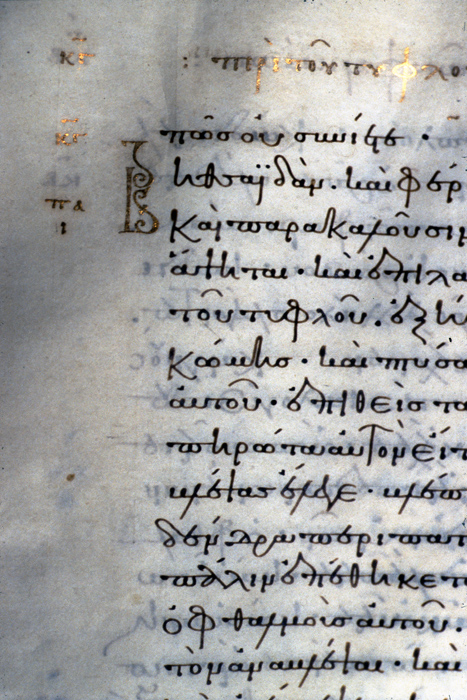 κγ : περὶ τοῦ τυφλο
κγ πῶς οὐ συνίετε ·
Βηθσαϊδάν. καὶ φέρ
πα
ι
καὶ παρακαλοῦσιν
ἅψηται · καὶ ἐπιλα
τοῦ τυφλοῦ. ἐξή
κώμης · καὶ πτύσα
αὐτοῦ · ἐπιθεὶς τα
πηρώτα αὐτὸν εἴ τ
βλέψας ἔλεγε · βλέπω
δένδρα περιπατ
πάλιν ἐπέθηκε τ
ὀφθαλμοὺς αὐτοῦ.
τὸν ἀναβλέψαι · καὶ